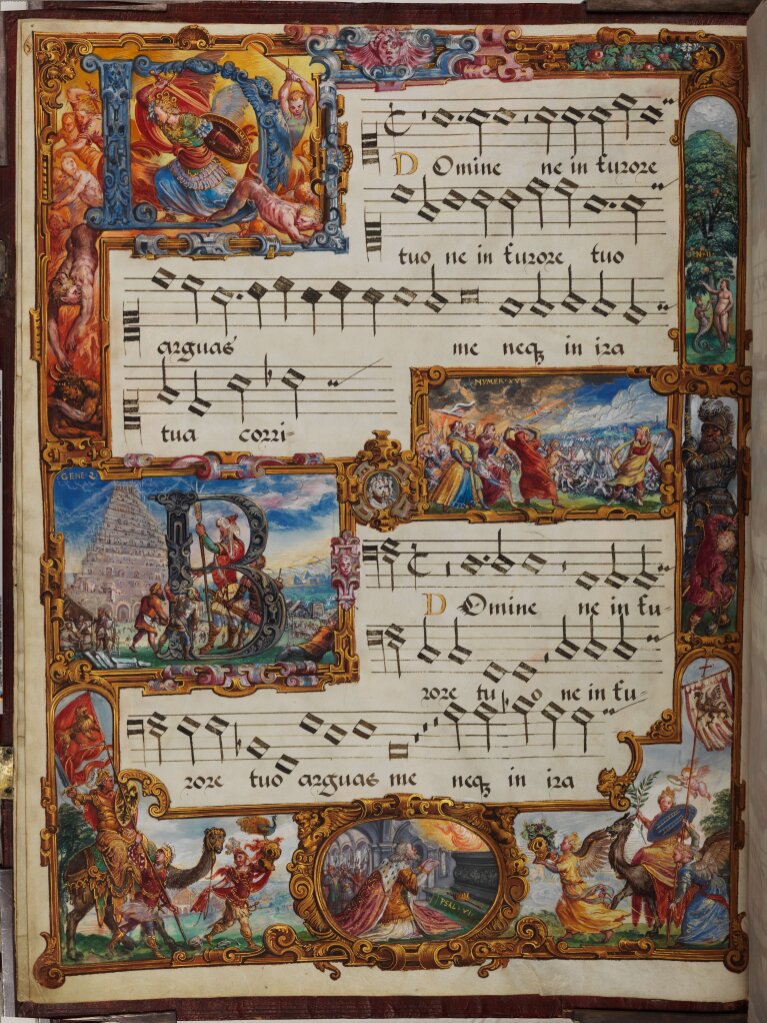 Domine ne in furore
tuo ne in furore tuo
arguas me neqȝ in ira
tua corri-
NVMER·XVI
GENE 2
Domine ne in fu-
rore tuo ne in fu-
rore tuo arguas me neqȝ in ira
PSAL·VI·